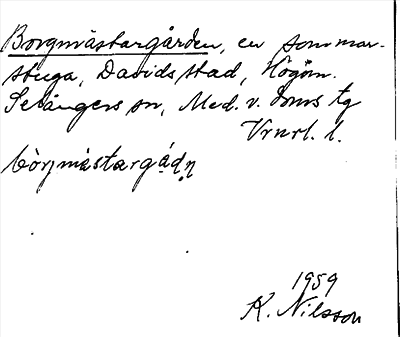 Borgmästargården, en sommar-
stuga, Davidsstad, Högom.
Selångers sn, Med. v. doms tg
Vrnrl. l.
bòrjmástargád̥n̥
1959
K. Nilsson